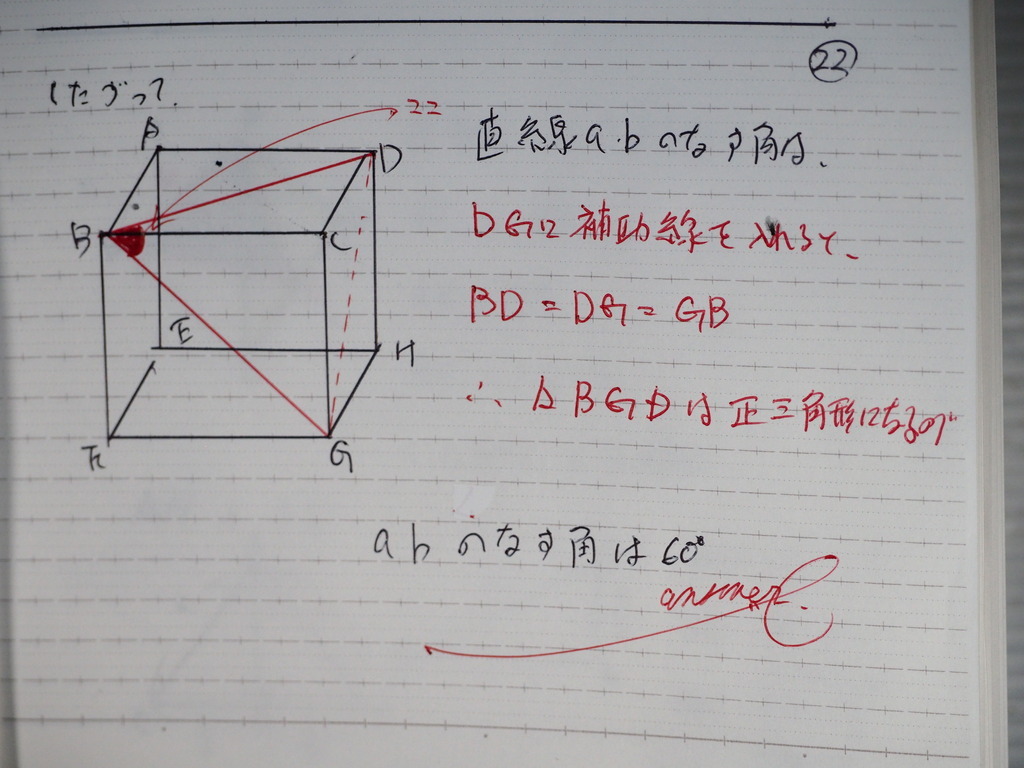 22
したがって、
ココ
直線a・bのなす角は、
A
D
B
C
E
H
F
G
DGに補助線を入れると、
BD = DG = GB
∴ △BGDは正三角形になるので
a b のなす角は60°
answer.